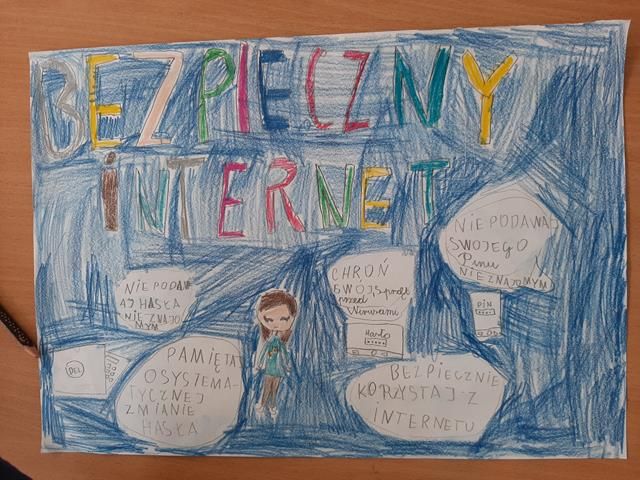 BEZPIECZNY
INTERNET
NIE PODAWAJ
SWOJEGO
Pinu
NIEZNAJOMYM
PIN
CHROŃ
SWÓJ sprzęt
przed
Wirusami
Hasło
NIE PODAW
AJ HASŁA
NIEZNAJO
MYM
DEL
PAMIĘTAJ
O SYSTEMA-
TYCZNEJ
ZMIANIE
HASŁA
BEZPIECZNIE
KORZYSTAJ Z
INTERNETU